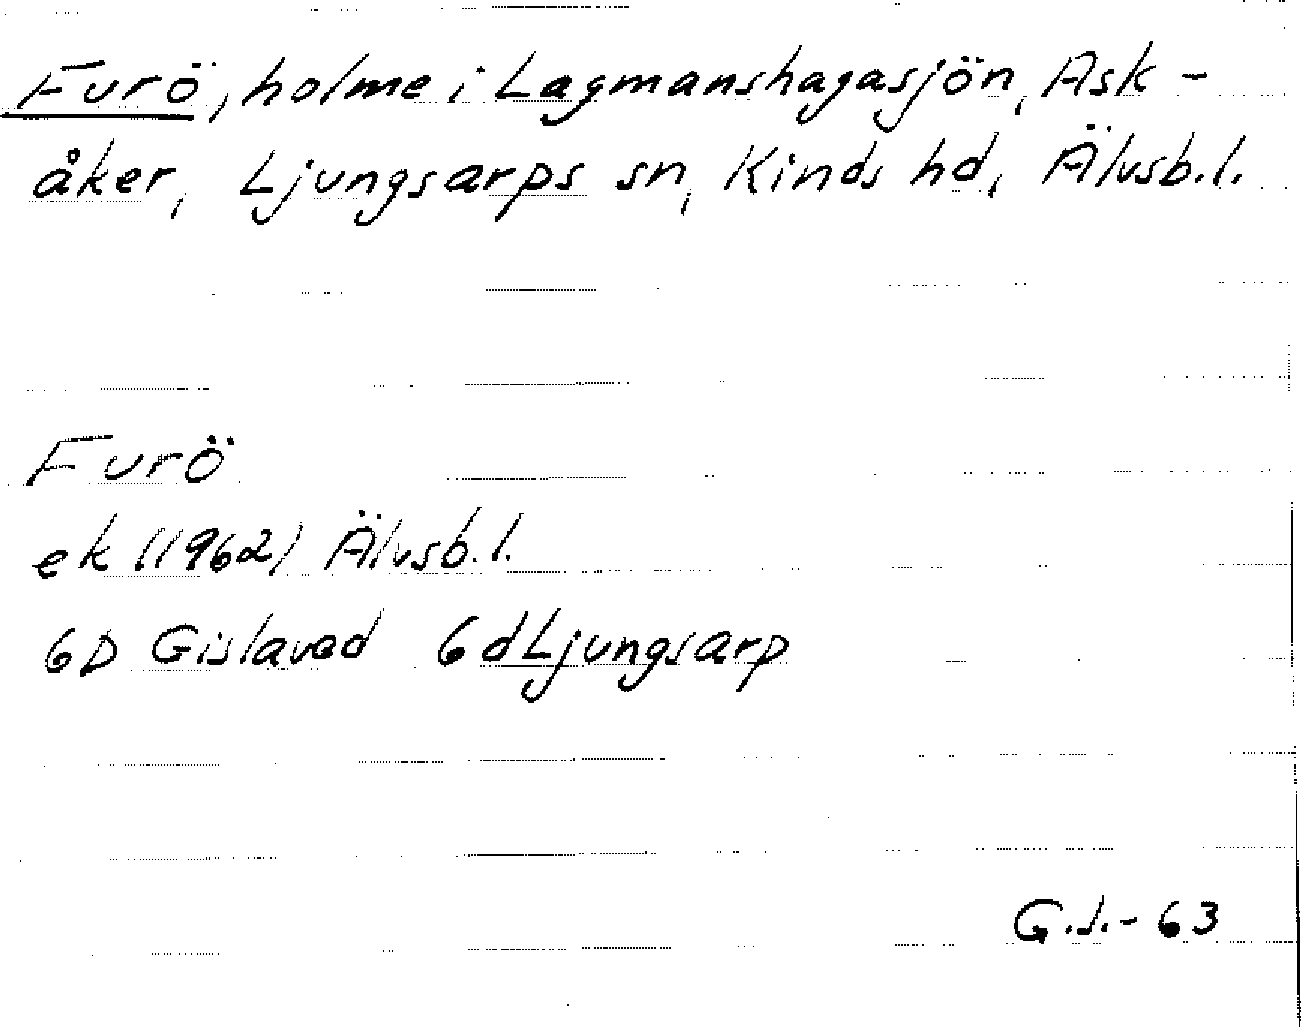 Furö, holme i Lagmanshagasjön, Ask-
åker, Ljungsarps sn, Kinds hd, Älvsb.l.
Furö
ek (1962) Älvsb.l.
6D Gislaved 6d Ljungsarp
G.J.-63